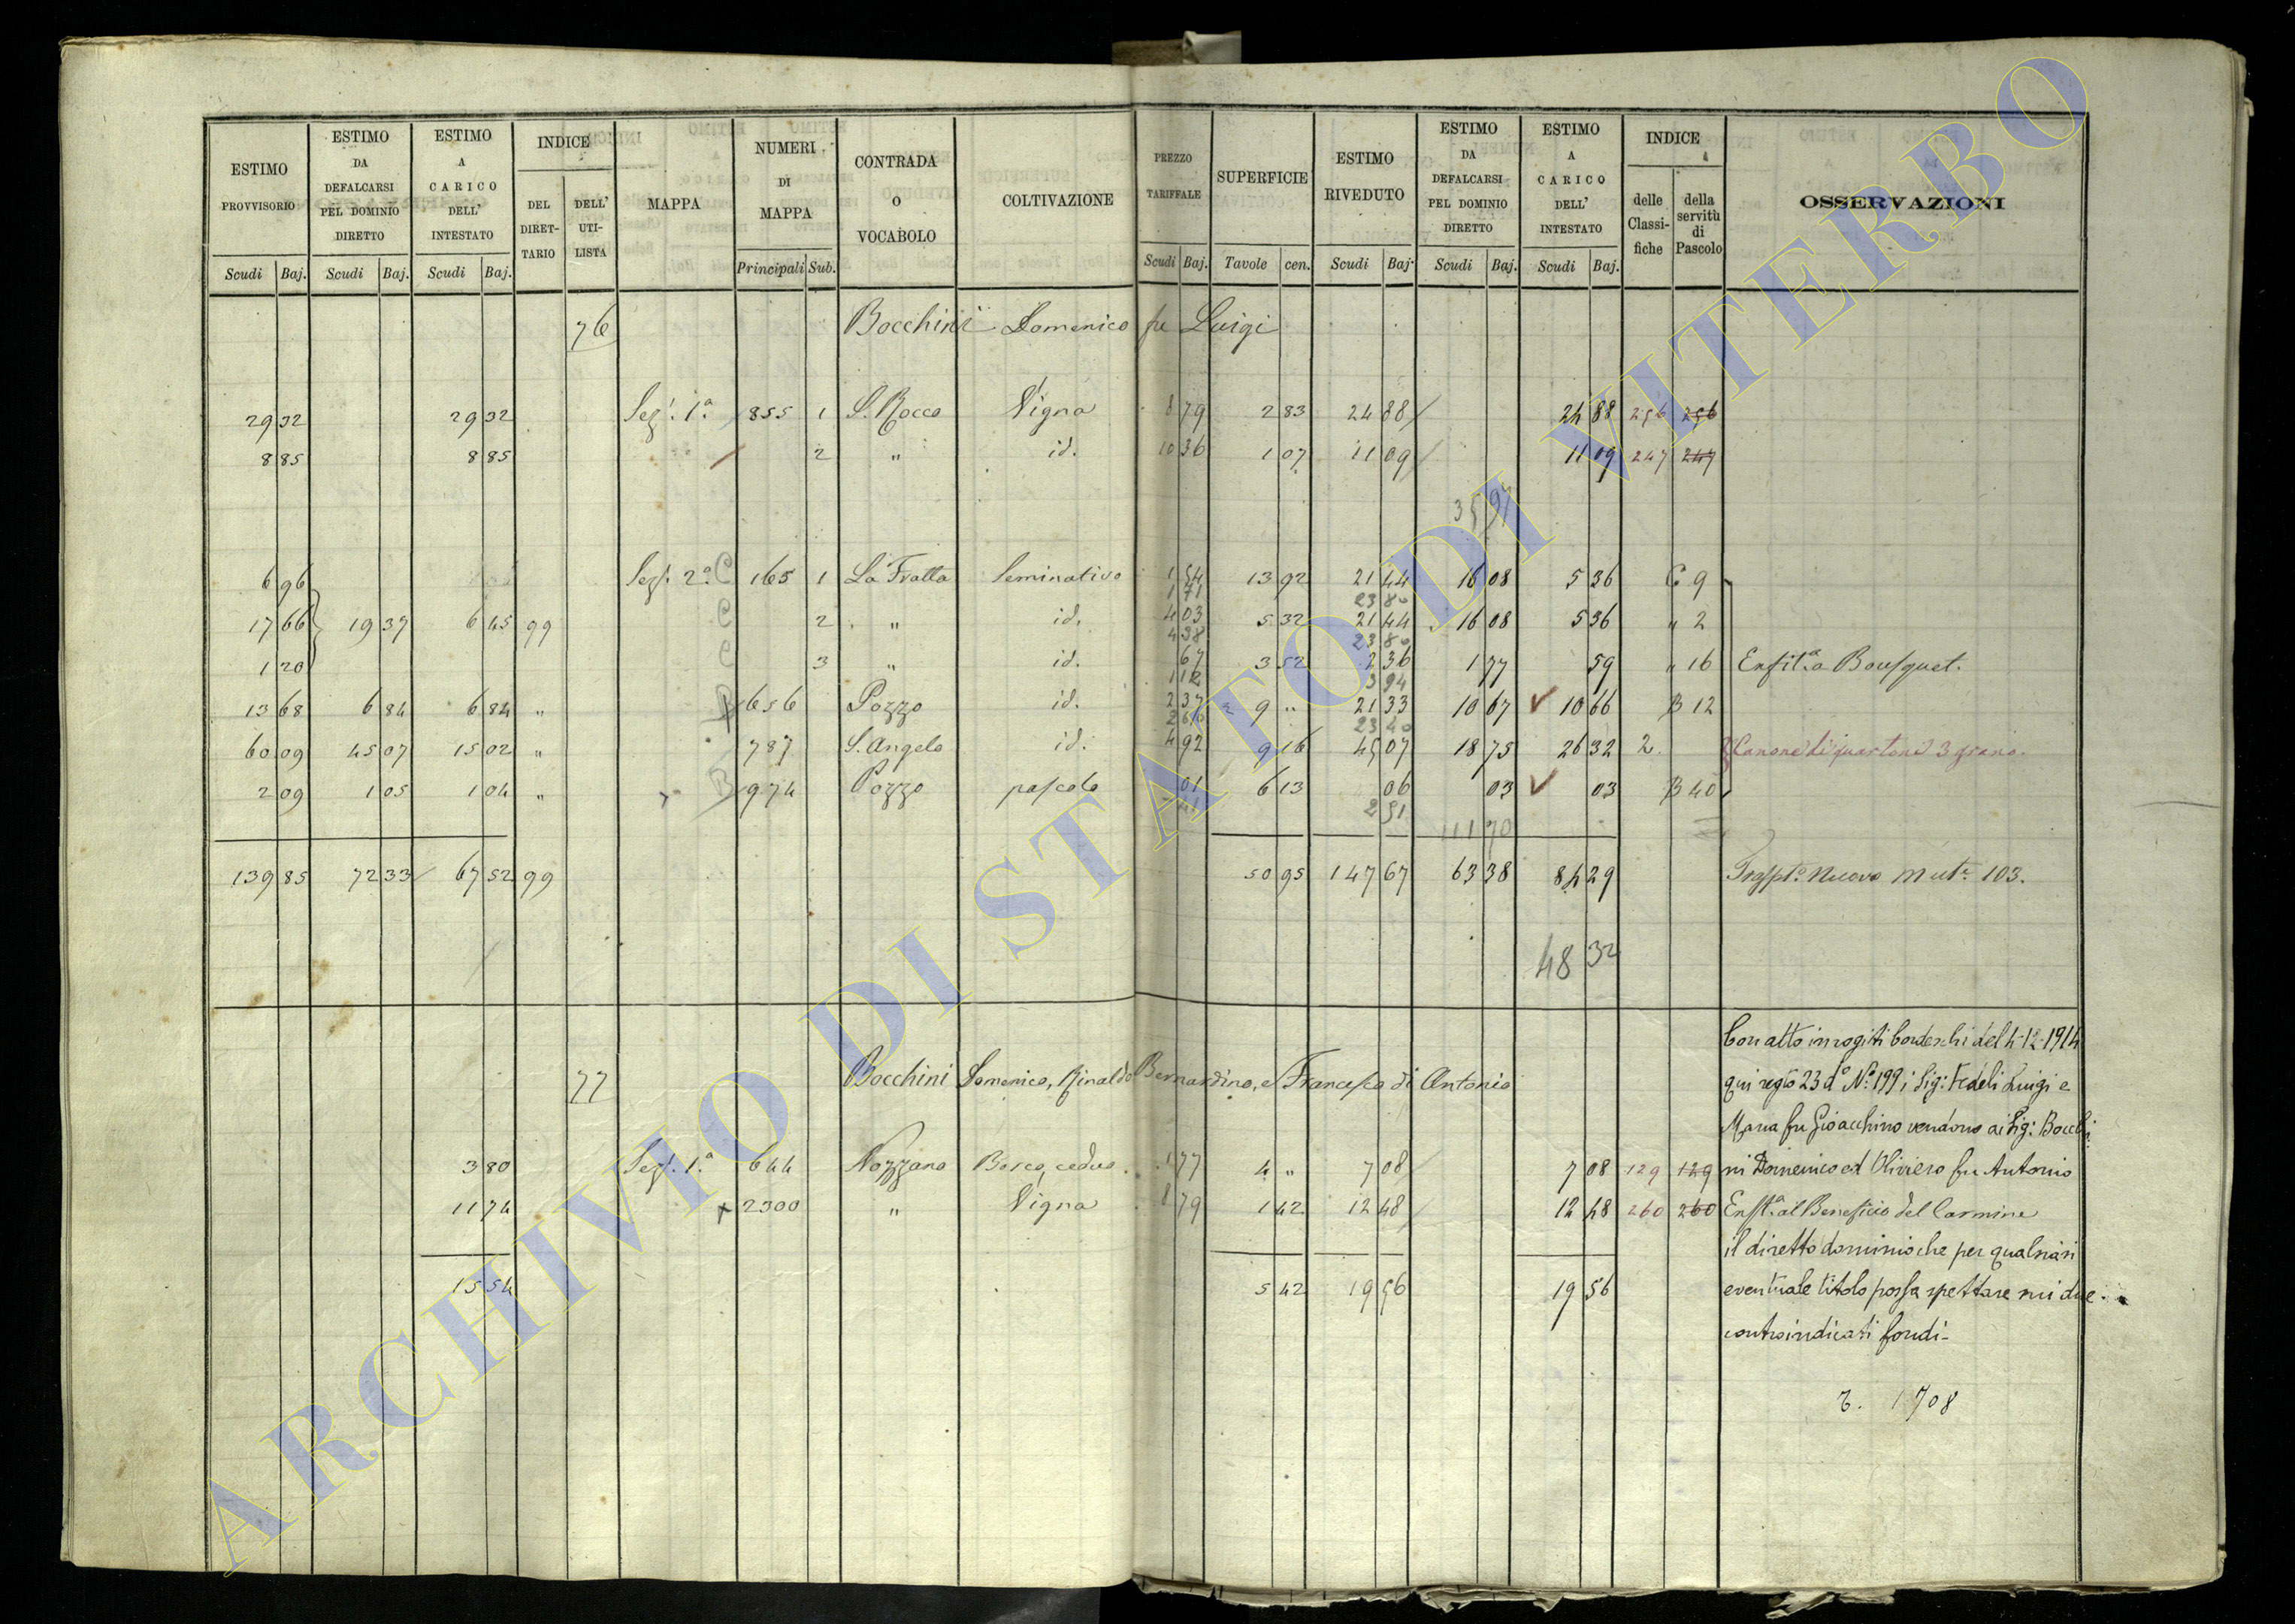 ESTIMO PROVVISORIO | ESTIMO DA DEFALCARSI PEL DOMINIO DIRETTO | ESTIMO A CARICO DELL' INTESTATO | INDICE | MAPPA | NUMERI DI MAPPA | CONTRADA O VOCABOLO | COLTIVAZIONE | PREZZO TARIFFALE | SUPERFICIE | ESTIMO RIVEDUTO | ESTIMO DA DEFALCARSI PEL DOMINIO DIRETTO | ESTIMO A CARICO DELL' INTESTATO | INDICE | OSSERVAZIONI
DEL DIRETTARIO | DELL' UTILISTA | delle Classifiche | della servitù di Pascolo
Scudi Baj. | Scudi Baj. | Scudi Baj. | Principali Sub. | Scudi Baj. | Tavole cen. | Scudi Baj. | Scudi Baj. | Scudi Baj.
76 Bocchini Domenico fu Luigi
29 32 | 29 32 | Sez. 1ª | 855 | 1 | S. Rocco | Vigna | 8 79 | 2 83 | 24 88 | 24 88 | 256 | 256
8 85 | 8 85 | 2 | " | id. | 10 36 | 1 07 | 11 09 | 11 09 | 247 | 247
35 97
6 96 | Sez. 2ª C | 165 | 1 | La Fratta | Seminativo | 1 54 | 13 92 | 21 44 | 16 08 | 5 36 | C 9
1 71 | 23 80
17 66 | 19 37 | 6 45 | 99 | C | 2 | " | id. | 4 03 | 5 32 | 21 44 | 16 08 | 5 36 | " 2
4 38 | 23 80
1 20 | C | 3 | " | id. | 67 | 3 52 | 2 36 | 1 77 | 59 | " 16 | Enfitª a Bousquet.
1 12 | 3 94
13 68 | 6 84 | 6 84 | " | 656 | Pozzo | id. | 2 37 | 9 " | 21 33 | 10 67 | 10 66 | B 12
2 60 | 23 40
60 09 | 45 07 | 15 02 | " | 787 | S. Angelo | id. | 4 92 | 9 16 | 45 07 | 18 75 | 26 32 | 2 | Canone di quartoni 3 grano.
2 09 | 1 05 | 1 04 | " | B | 974 | Pozzo | pascolo | 01 | 6 13 | 06 | 03 | 03 | B 40
2 51
111 70
139 85 | 72 33 | 67 52 | 99 | 50 95 | 147 67 | 63 38 | 84 29 | Trasptº Nuovo Mutª 103.
48 32
77 Bocchini Domenico, Rinaldo Bernardino, e Francesco di Antonio
3 80 | Sez. 1ª | 644 | Nozzano | Bosco ceduo | 1 77 | 4 " | 7 08 | 7 08 | 129 | 129
11 74 | 2300 | " | Vigna | 8 79 | 1 42 | 12 48 | 12 48 | 260 | 260
15 54 | 5 42 | 19 56 | 19 56
Con atto in rogiti Cordeschi del 4-12-1914
qui regto 23 dº Nº 199 i Sig: Fedeli Luigi e
Maria fu Gioacchino vendono ai Sig: Bocchi-
ni Domenico ed Oliviero fu Antonio
Enftª al Beneficio del Carmine
il diretto dominio che per qualsiasi
eventuale titolo possa spettare sui due
controindicati fondi-
1708
ARCHIVIO DI STATO DI VITERBO